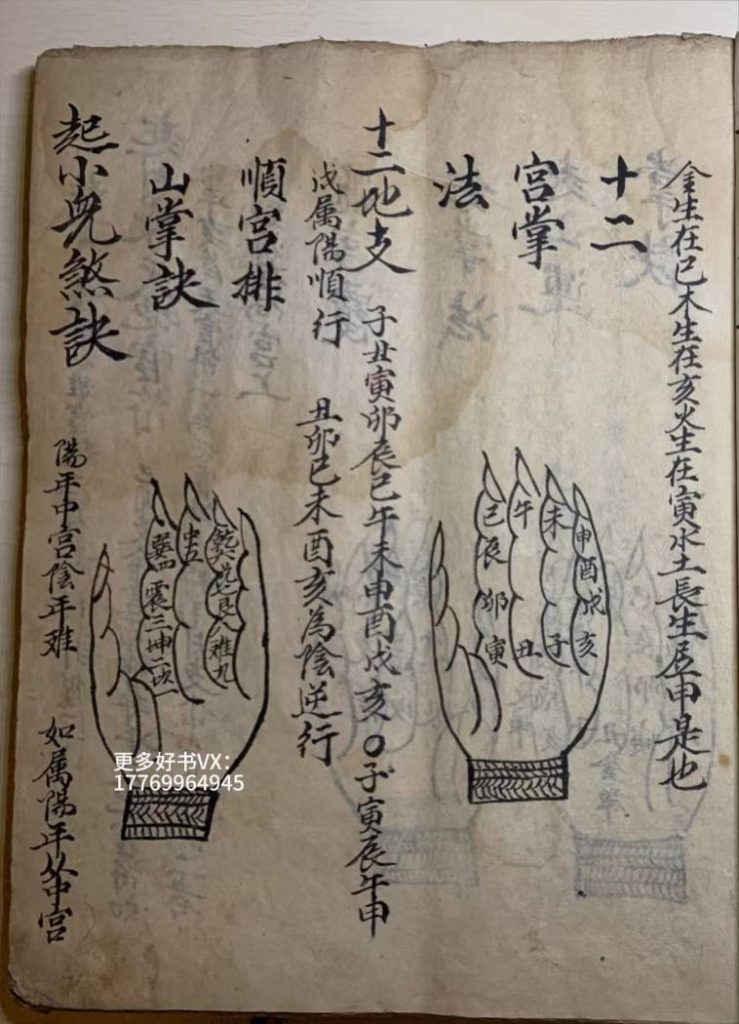 金生在巳木生在亥火生在寅水土長生居申是也
十二
宮掌
法
申酉戌亥
未 子
午 丑
巳辰卯寅
十二地支 子丑寅卯辰巳午未申酉戌亥○子寅辰午申
戌属陽順行 丑卯巳未酉亥為陰逆行
順宮排
山掌訣
乾六兌七艮八难九
中五
巽四震三坤二坎一
起小児煞訣 陽年中宮陰年难 如属陽年从中宮
更多好书VX：
17769964945